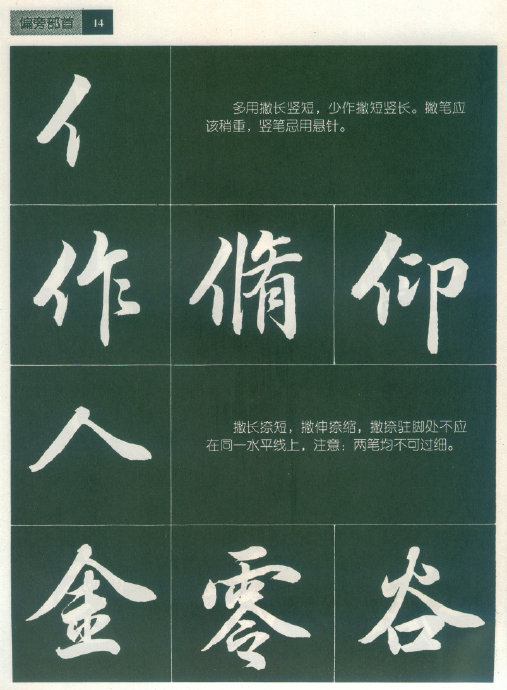 偏旁部首 14
亻
多用撇长竖短，少作撇短竖长。撇笔应
该稍重，竖笔忌用悬针。
作 脩 仰
人
撇长捺短，撇伸捺缩，撇捺驻脚处不应
在同一水平线上，注意：两笔均不可过细。
金 零 谷